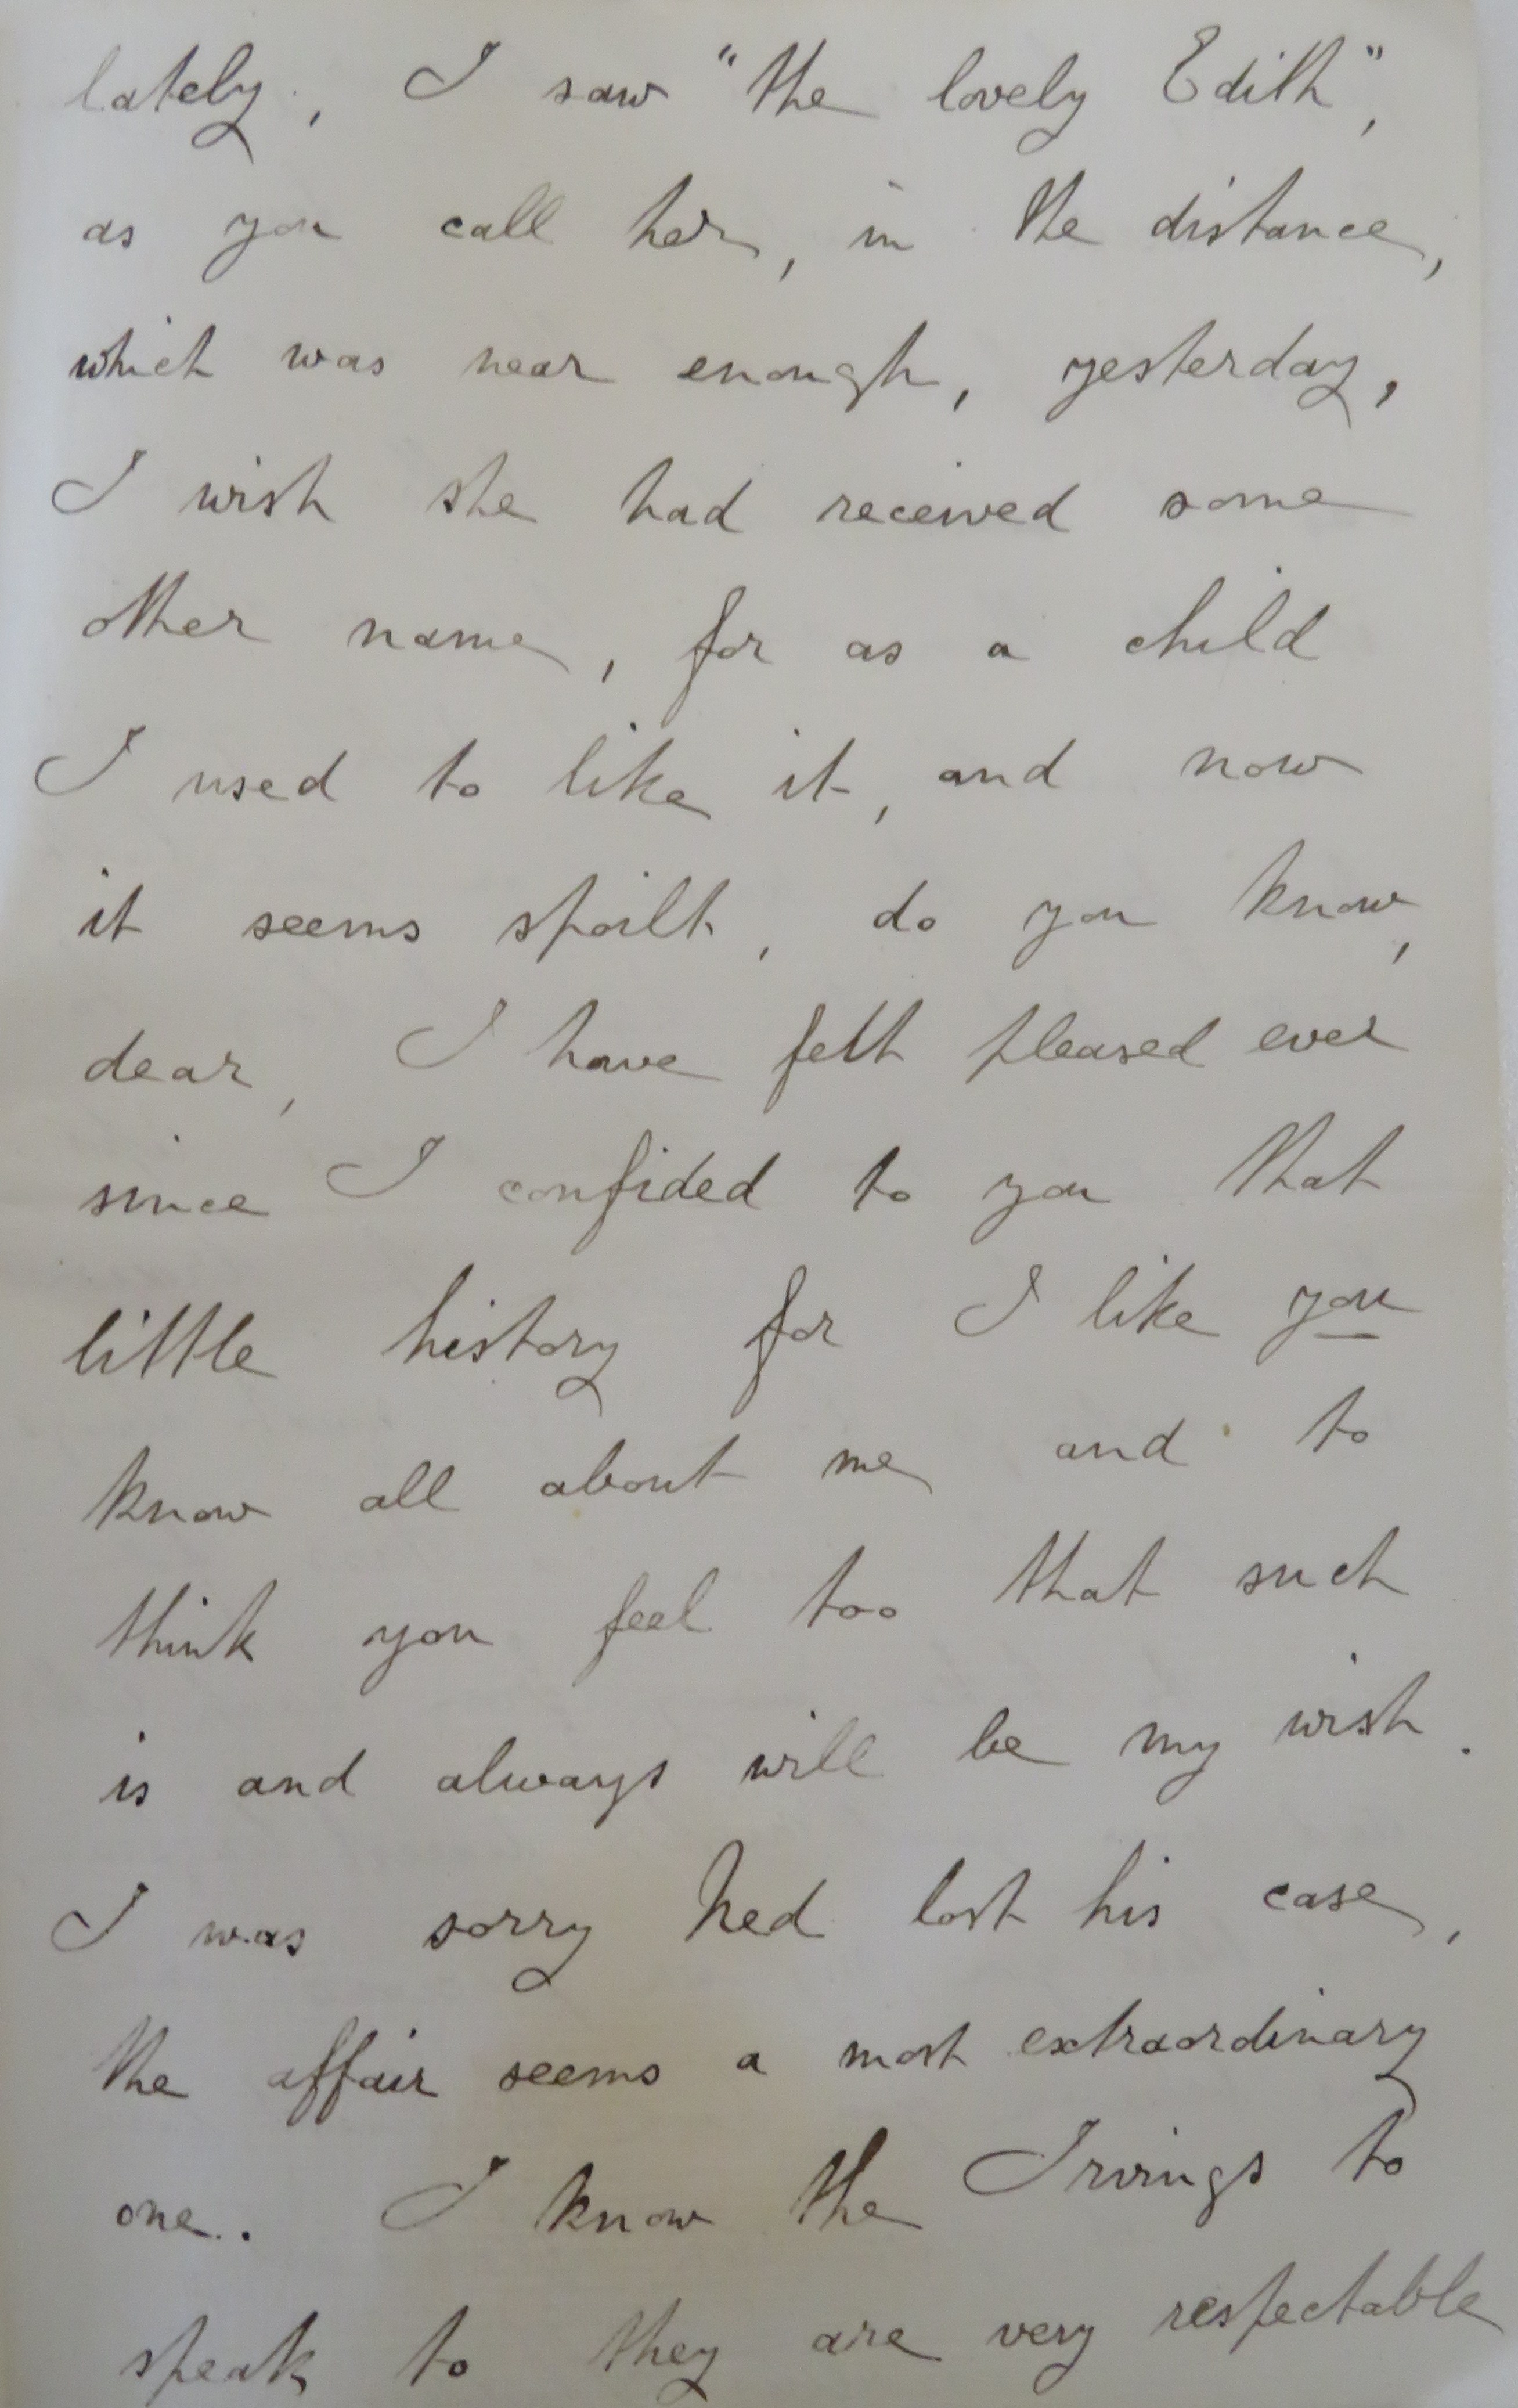 lately, I saw "the lovely Edith",
as you call her, in the distance,
which was near enough, yesterday,
I wish she had received some
other name, for as a child
I used to like it, and now
it seems spoilt, do you know,
dear, I have felt pleased ever
since I confided to you that
little history for I like you
know all about me and to
think you feel too that such
is and always will be my wish.
I was sorry Ned lost his case,
the affair seems a most extraordinary
one. I know the Irvings to
speak to they are very respectable